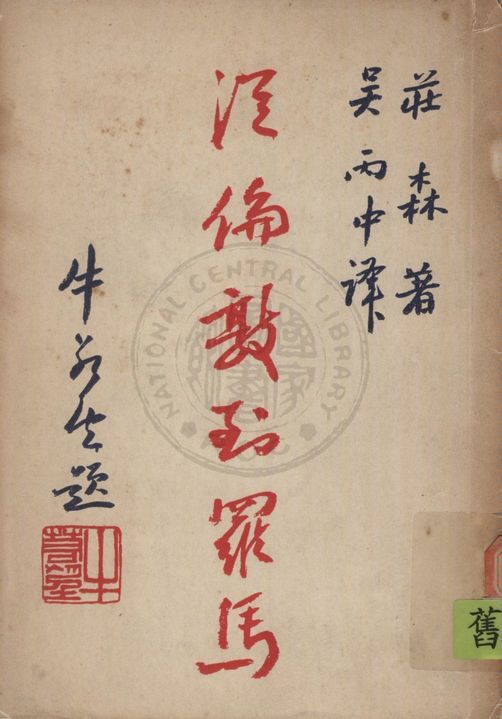 莊森著
吳丙中譯
從倫敦到羅馬
牛若望題
NATIONAL CENTRAL LIBRARY
舊